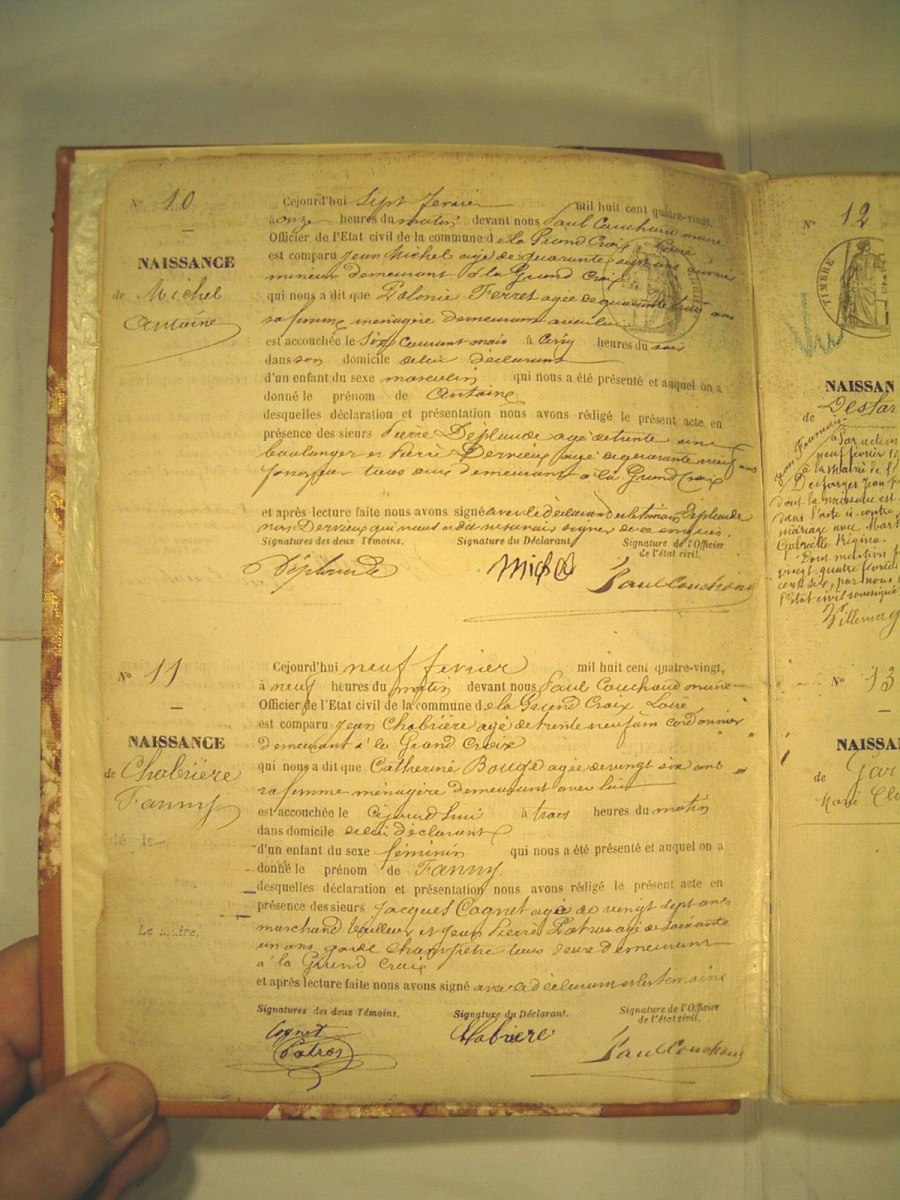 Nº 10
NAISSANCE
de Michel
Antoine
Cejourd'hui Sept fevrier mil huit cent quatre-vingt,
à onze heures du matin devant nous Paul Couchoud maire
Officier de l'Etat civil de la commune de la Grand Croix Loire
est comparu Jean Michel agé de quarante ans ouvrier
mineur demeurant à la Grand Croix
qui nous a dit que Polonie Ferret agée de quarante trois ans
sa femme ménagère demeurant avec lui
est accouchée le Six courant mois à cinq heures du soir
dans son domicile de lui déclarant
d'un enfant du sexe masculin qui nous a été présenté et auquel on a
donné le prénom de Antoine
desquelles déclaration et présentation nous avons rédigé le présent acte en
présence des sieurs Pierre Déplaude agé de trente ans
boulanger et Pierre Dervieux agé de quarante neuf ans
tous deux demeurant à la Grand Croix
et après lecture faite nous avons signé avec le déclarant et le témoin Déplaude
non Dervieux qui nous a dit ne savoir signer de ce enquis.
Signatures des deux Témoins.
Signature du Déclarant.
Signature de l'Officier
de l'état civil.
Déplaude
Michel
Paul Couchoud
Nº 11
NAISSANCE
de Chabrière
Fanny
Le Maire.
Cejourd'hui neuf fevrier mil huit cent quatre-vingt,
à neuf heures du matin devant nous Paul Couchoud maire
Officier de l'Etat civil de la commune de la Grand Croix Loire
est comparu Jean Chabrière agé de trente neuf ans cordonnier
demeurant à la Grand Croix
qui nous a dit que Catherine Bouge agée de vingt six ans
sa femme ménagère demeurant avec lui
est accouchée le Cejourd'hui à trois heures du matin
dans domicile de lui déclarant
d'un enfant du sexe féminin qui nous a été présenté et auquel on a
donné le prénom de Fanny.
desquelles déclaration et présentation nous avons rédigé le présent acte en
présence des sieurs Jacques Cognet agé de vingt sept ans
marchand tailleur et Jean Pierre Patros agé de soixante
un ans garde champêtre tous deux demeurant
à la Grand Croix
et après lecture faite nous avons signé avec le déclarant et les témoins
Signatures des deux Témoins.
Signature du Déclarant.
Signature de l'Officier
de l'état civil.
Cognet
Patros
Chabriere
Paul Couchoud
Nº 12
TIMBRE
NAISSAN
de Desfar
Par acte en
neuf février
à la mairie de
Desfarges Jean
dont la naissance est
dans l'acte ci-contre
mariage avec Mar
Gabrielle Régina.
Dont mention
vingt quatre février
cent six, par nous
l'état civil soussigné
Villemag
Nº 13
NAISSA
de Gar
Marie Cl